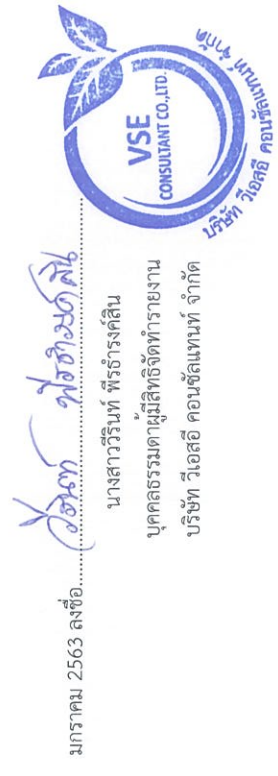 มกราคม 2563 ลงชื่อ........วีรินท์ พีรธำรงค์สิน........
นางสาววีรินท์ พีรธำรงค์สิน
บุคคลธรรมดาผู้มีสิทธิจัดทำรายงาน
บริษัท วีเอสอี คอนซัลแทนท์ จำกัด
VSE
CONSULTANT CO.,LTD.
บริษัท วีเอสอี คอนซัลแทนท์ จำกัด